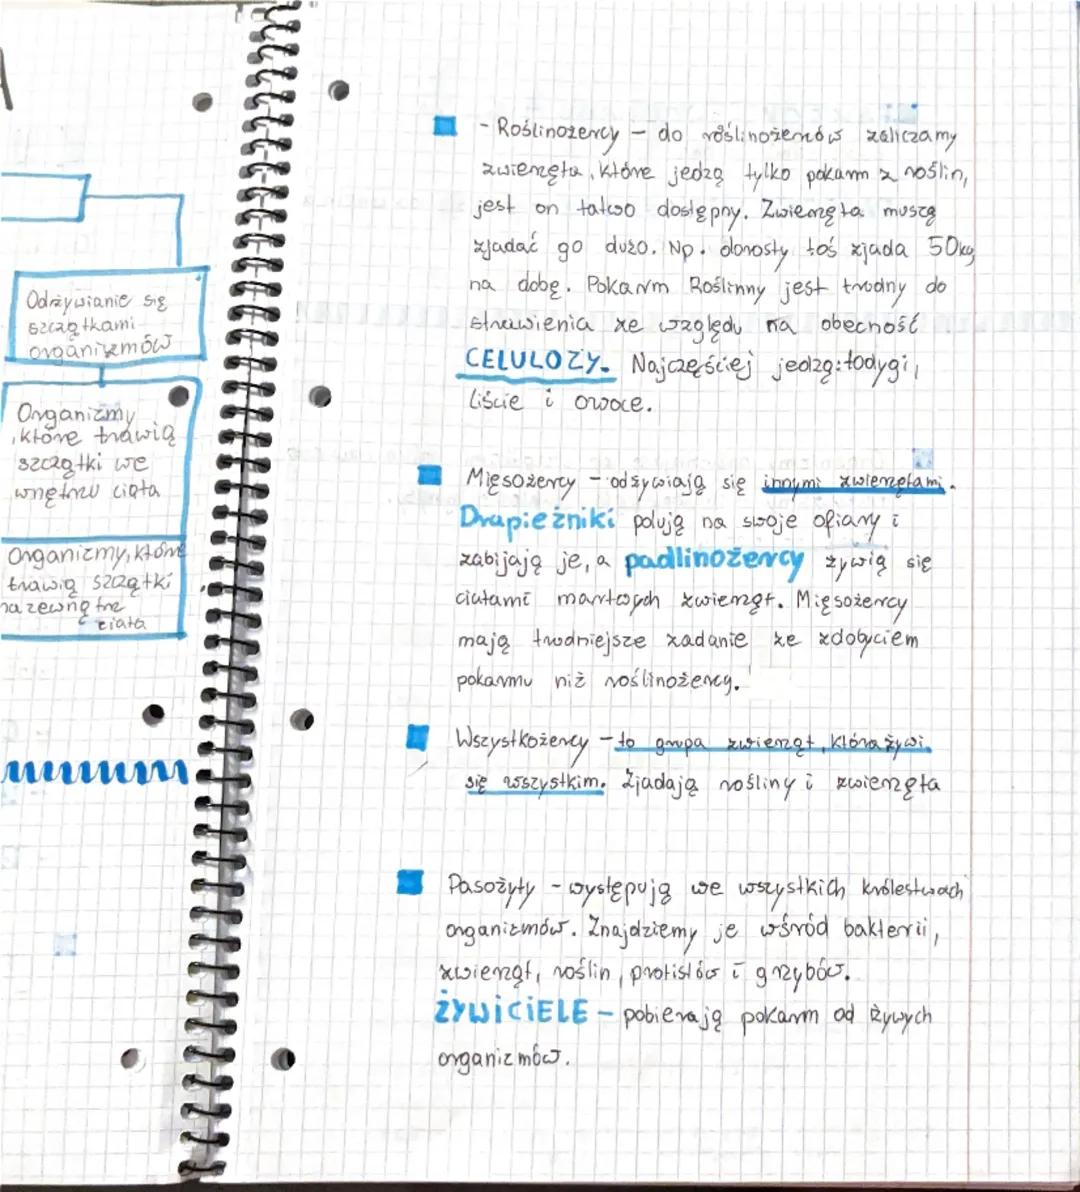 Odżywianie się
szczątkami
organizmów
Organizmy
, które trawią
szczątki we
wnętrzu ciała
Organizmy, które
trawią szczątki
na zewnątrz
ciała
- Roślinożercy – do roślinożerców zaliczamy
zwierzęta, które jedzą tylko pokarm z roślin,
jest on łatwo dostępny. Zwierzęta muszą
zjadać go dużo. Np. dorosły łoś zjada 50kg
na dobę. Pokarm Roślinny jest trudny do
strawienia ze względu na obecność
CELULOZY. Najczęściej jedzą: łodygi,
liście i owoce.
Mięsożercy – odżywiają się innymi zwierzętami.
Drapieżniki polują na swoje ofiary i
zabijają je, a padlinożercy żywią się
ciałami martwych zwierząt. Mięsożercy
mają trudniejsze zadanie ze zdobyciem
pokarmu niż roślinożercy.
Wszystkożercy – to grupa zwierząt, która żywi
się wszystkim. Zjadają rośliny i zwierzęta
Pasożyty – występują we wszystkich królestwach
organizmów. Znajdziemy je wśród bakterii,
zwierząt, roślin, protistów i grzybów.
ŻYWiCiELE – pobierają pokarm od żywych
organizmów.